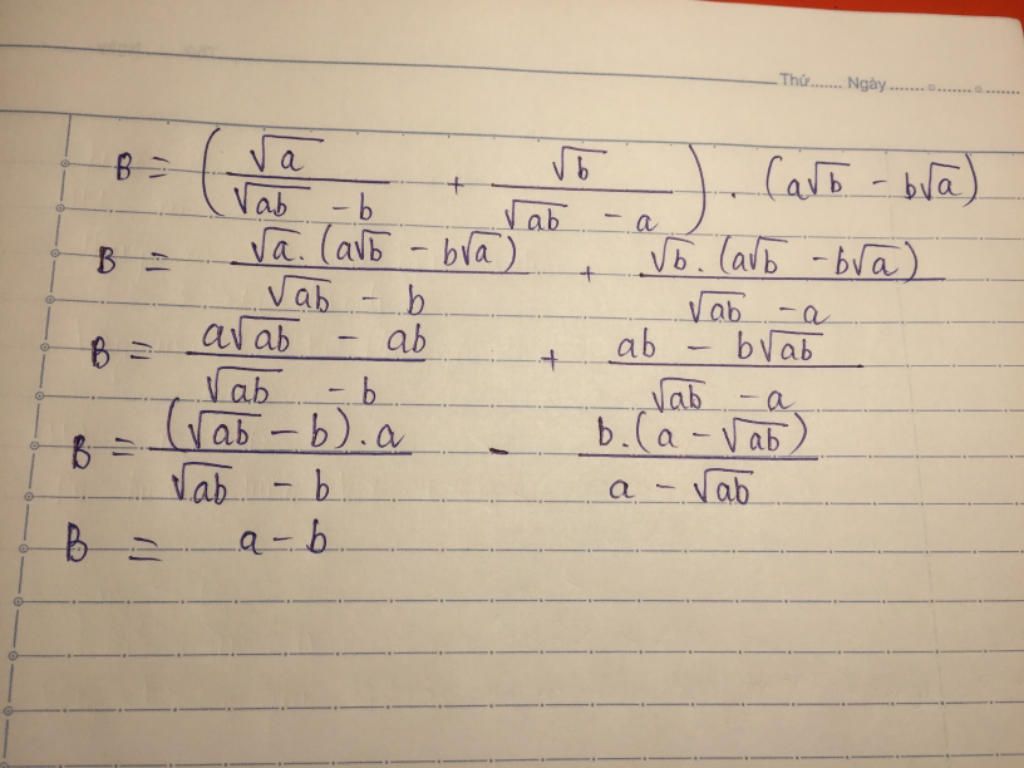 Thứ....... Ngày .......○.......○.......
B = (√a/(√ab - b) + √b/(√ab - a)) . (a√b - b√a)
B = √a.(a√b - b√a)/(√ab - b) + √b.(a√b - b√a)/(√ab - a)
B = (a√ab - ab)/(√ab - b) + (ab - b√ab)/(√ab - a)
B = (√ab - b).a/(√ab - b) - b.(a - √ab)/(a - √ab)
B = a - b